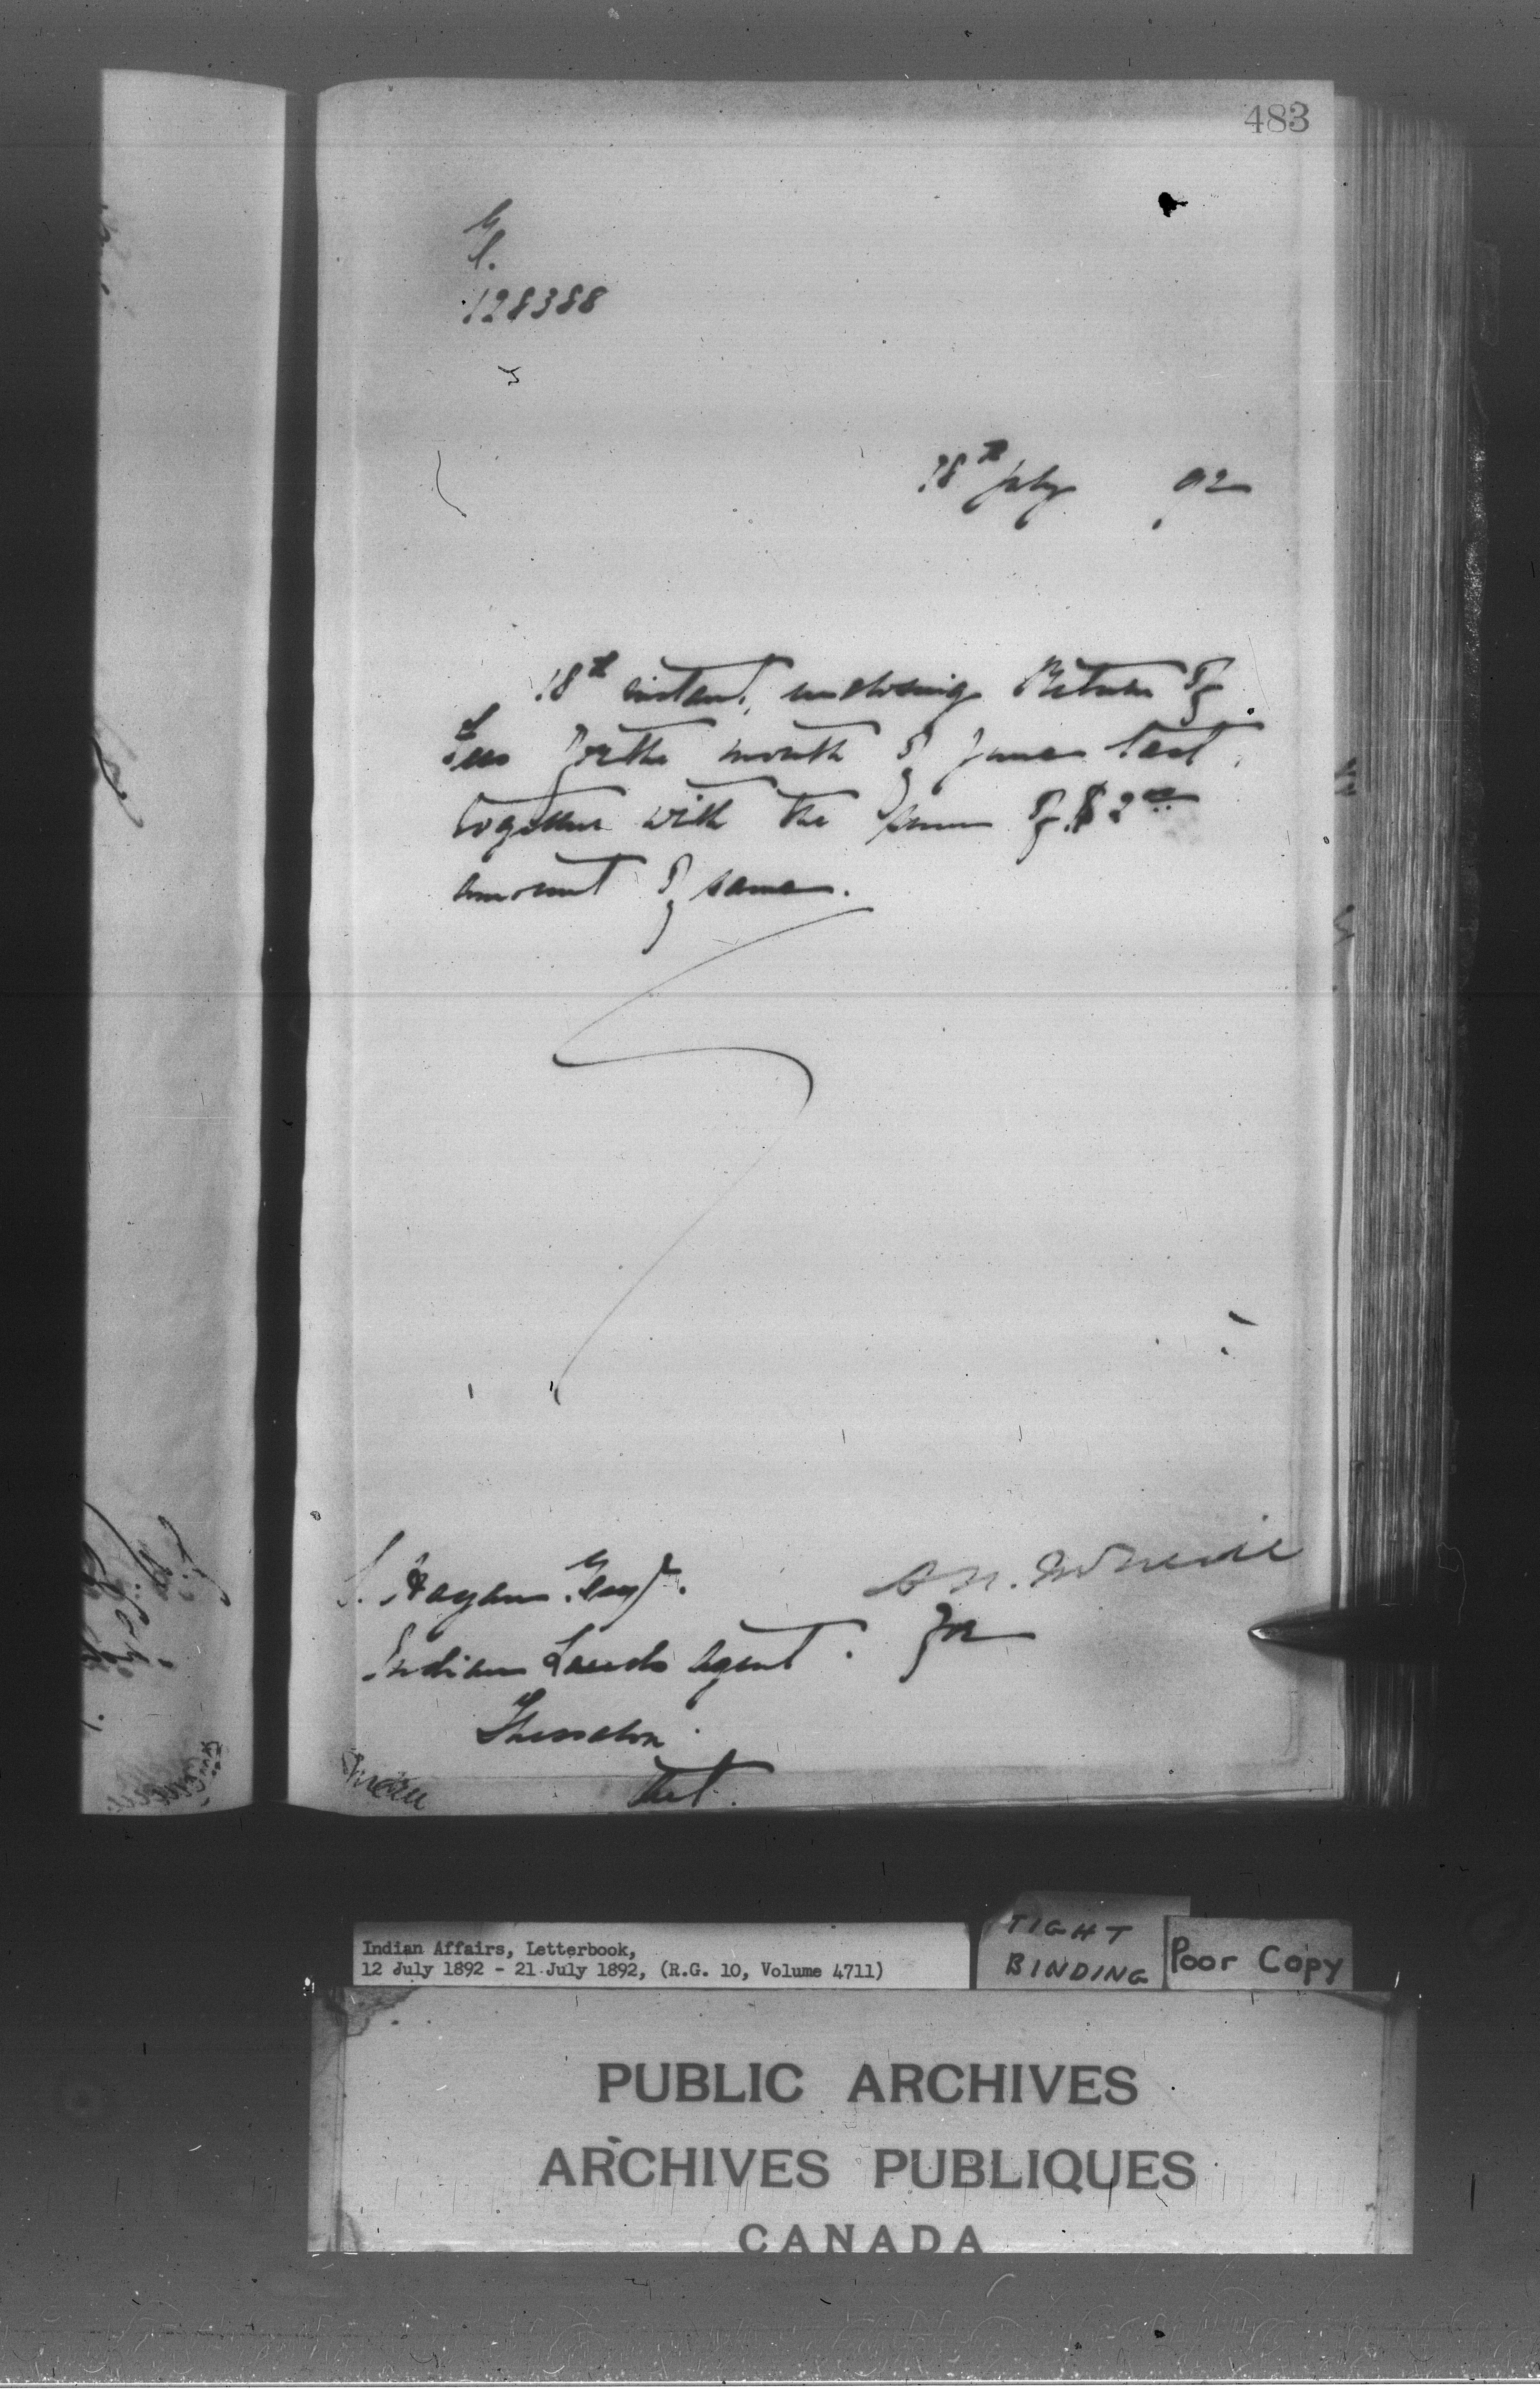 483
128388
18th July 92
18th instant, enclosing Return of
Fees for the month of June last,
together with the sum of $2.00
amount of same.
S. Hagan Esq.
Indian Lands Agent.
Thessalon
Ont.
A. N. McNeill
for
Indian Affairs, Letterbook,
12 July 1892 - 21 July 1892, (R.G. 10, Volume 4711)
TIGHT
BINDING
Poor Copy
PUBLIC ARCHIVES
ARCHIVES PUBLIQUES
CANADA